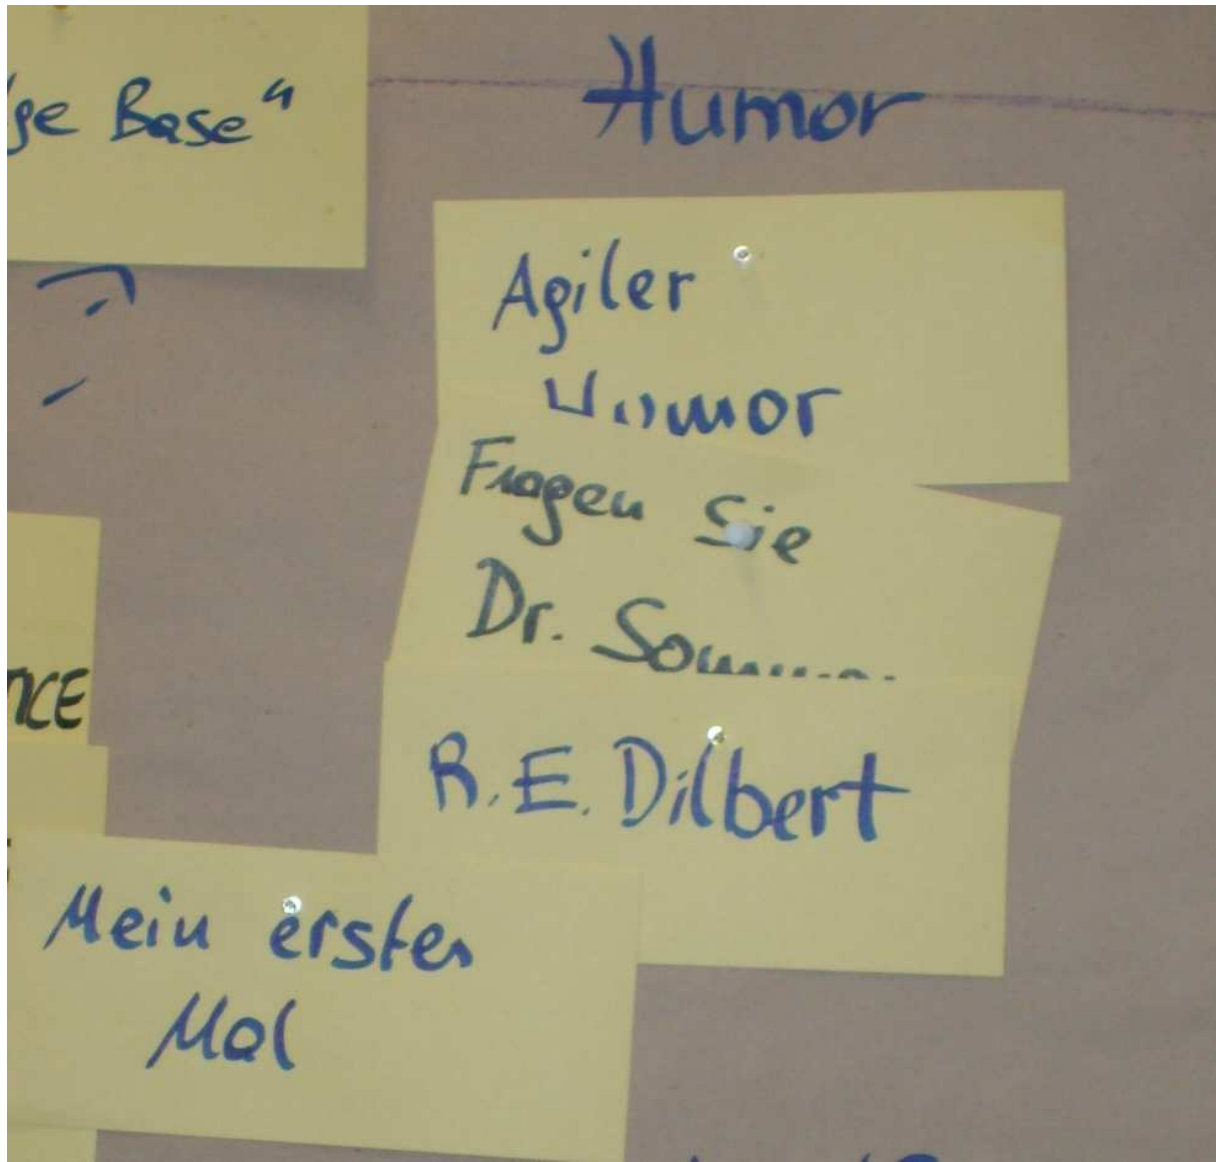 Base"
Humor
Agiler
Humor
Fragen Sie
Dr.
R.E. Dilbert
Mein erstes
Mal